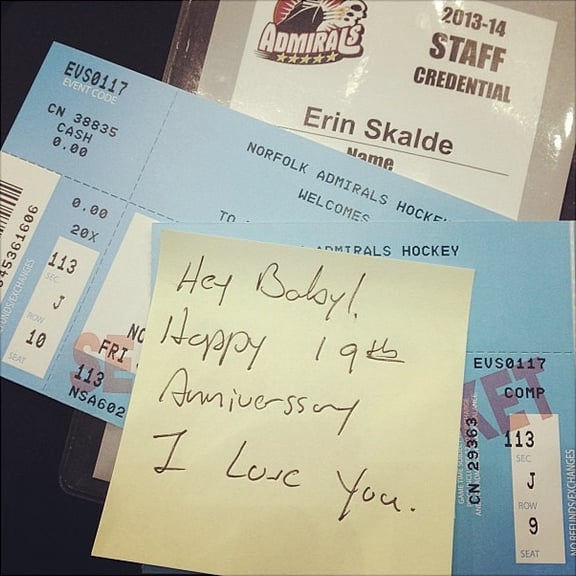 ADMIRALS
2013-14
STAFF
CREDENTIAL
Erin Skalde
Name
EVS0117
EVENT CODE
CN 38835
CASH
0.00
NORFOLK ADMIRALS HOCKEY
WELCOMES
TO
0.00
20X
113
SEC
J
ROW
10
SEAT
NO
FRI
113
NSA602
045361606
REFUNDS/EXCHANGES
ADMIRALS HOCKEY
Hey Baby!
Happy 19th
Anniverssary
I Love You.
EVS0117
COMP
CN 29363
113
SEC
J
ROW
9
SEAT
NO REFUNDS/EXCHANGES